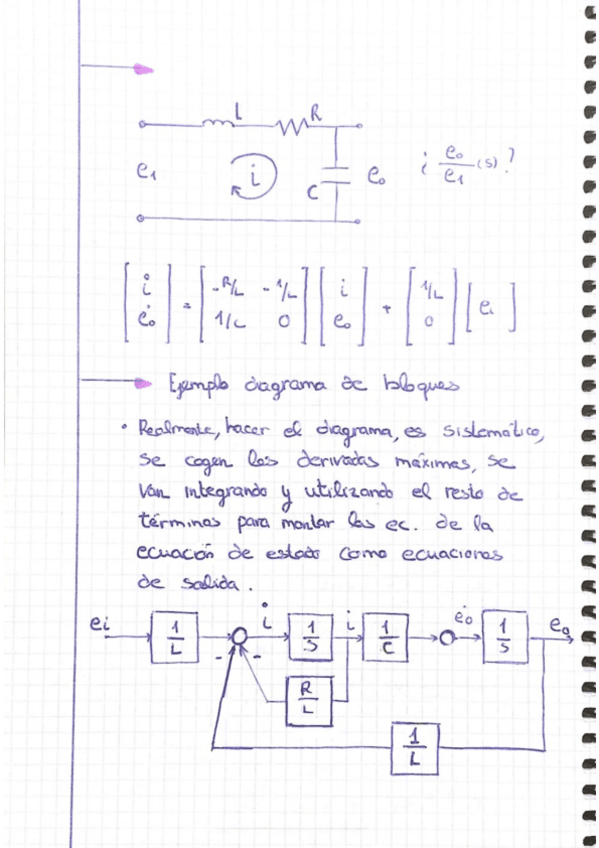 L R
e₁ i C e₀ ¿ e₀/e₁ (s)?
[i̇ ė₀] = [-R/L -1/L 1/C 0] [i e₀] + [1/L 0] [eᵢ]
Ejemplo diagrama de bloques
• Realmente, hacer el diagrama, es sistemático,
se cogen las derivadas máximas, se
van integrando y utilizando el resto de
términos para montar las ec. de la
ecuación de estado como ecuaciones
de salida.
ei 1/L i̇ 1/S i 1/C ė₀ 1/S e₀
- -
R/L
1/L